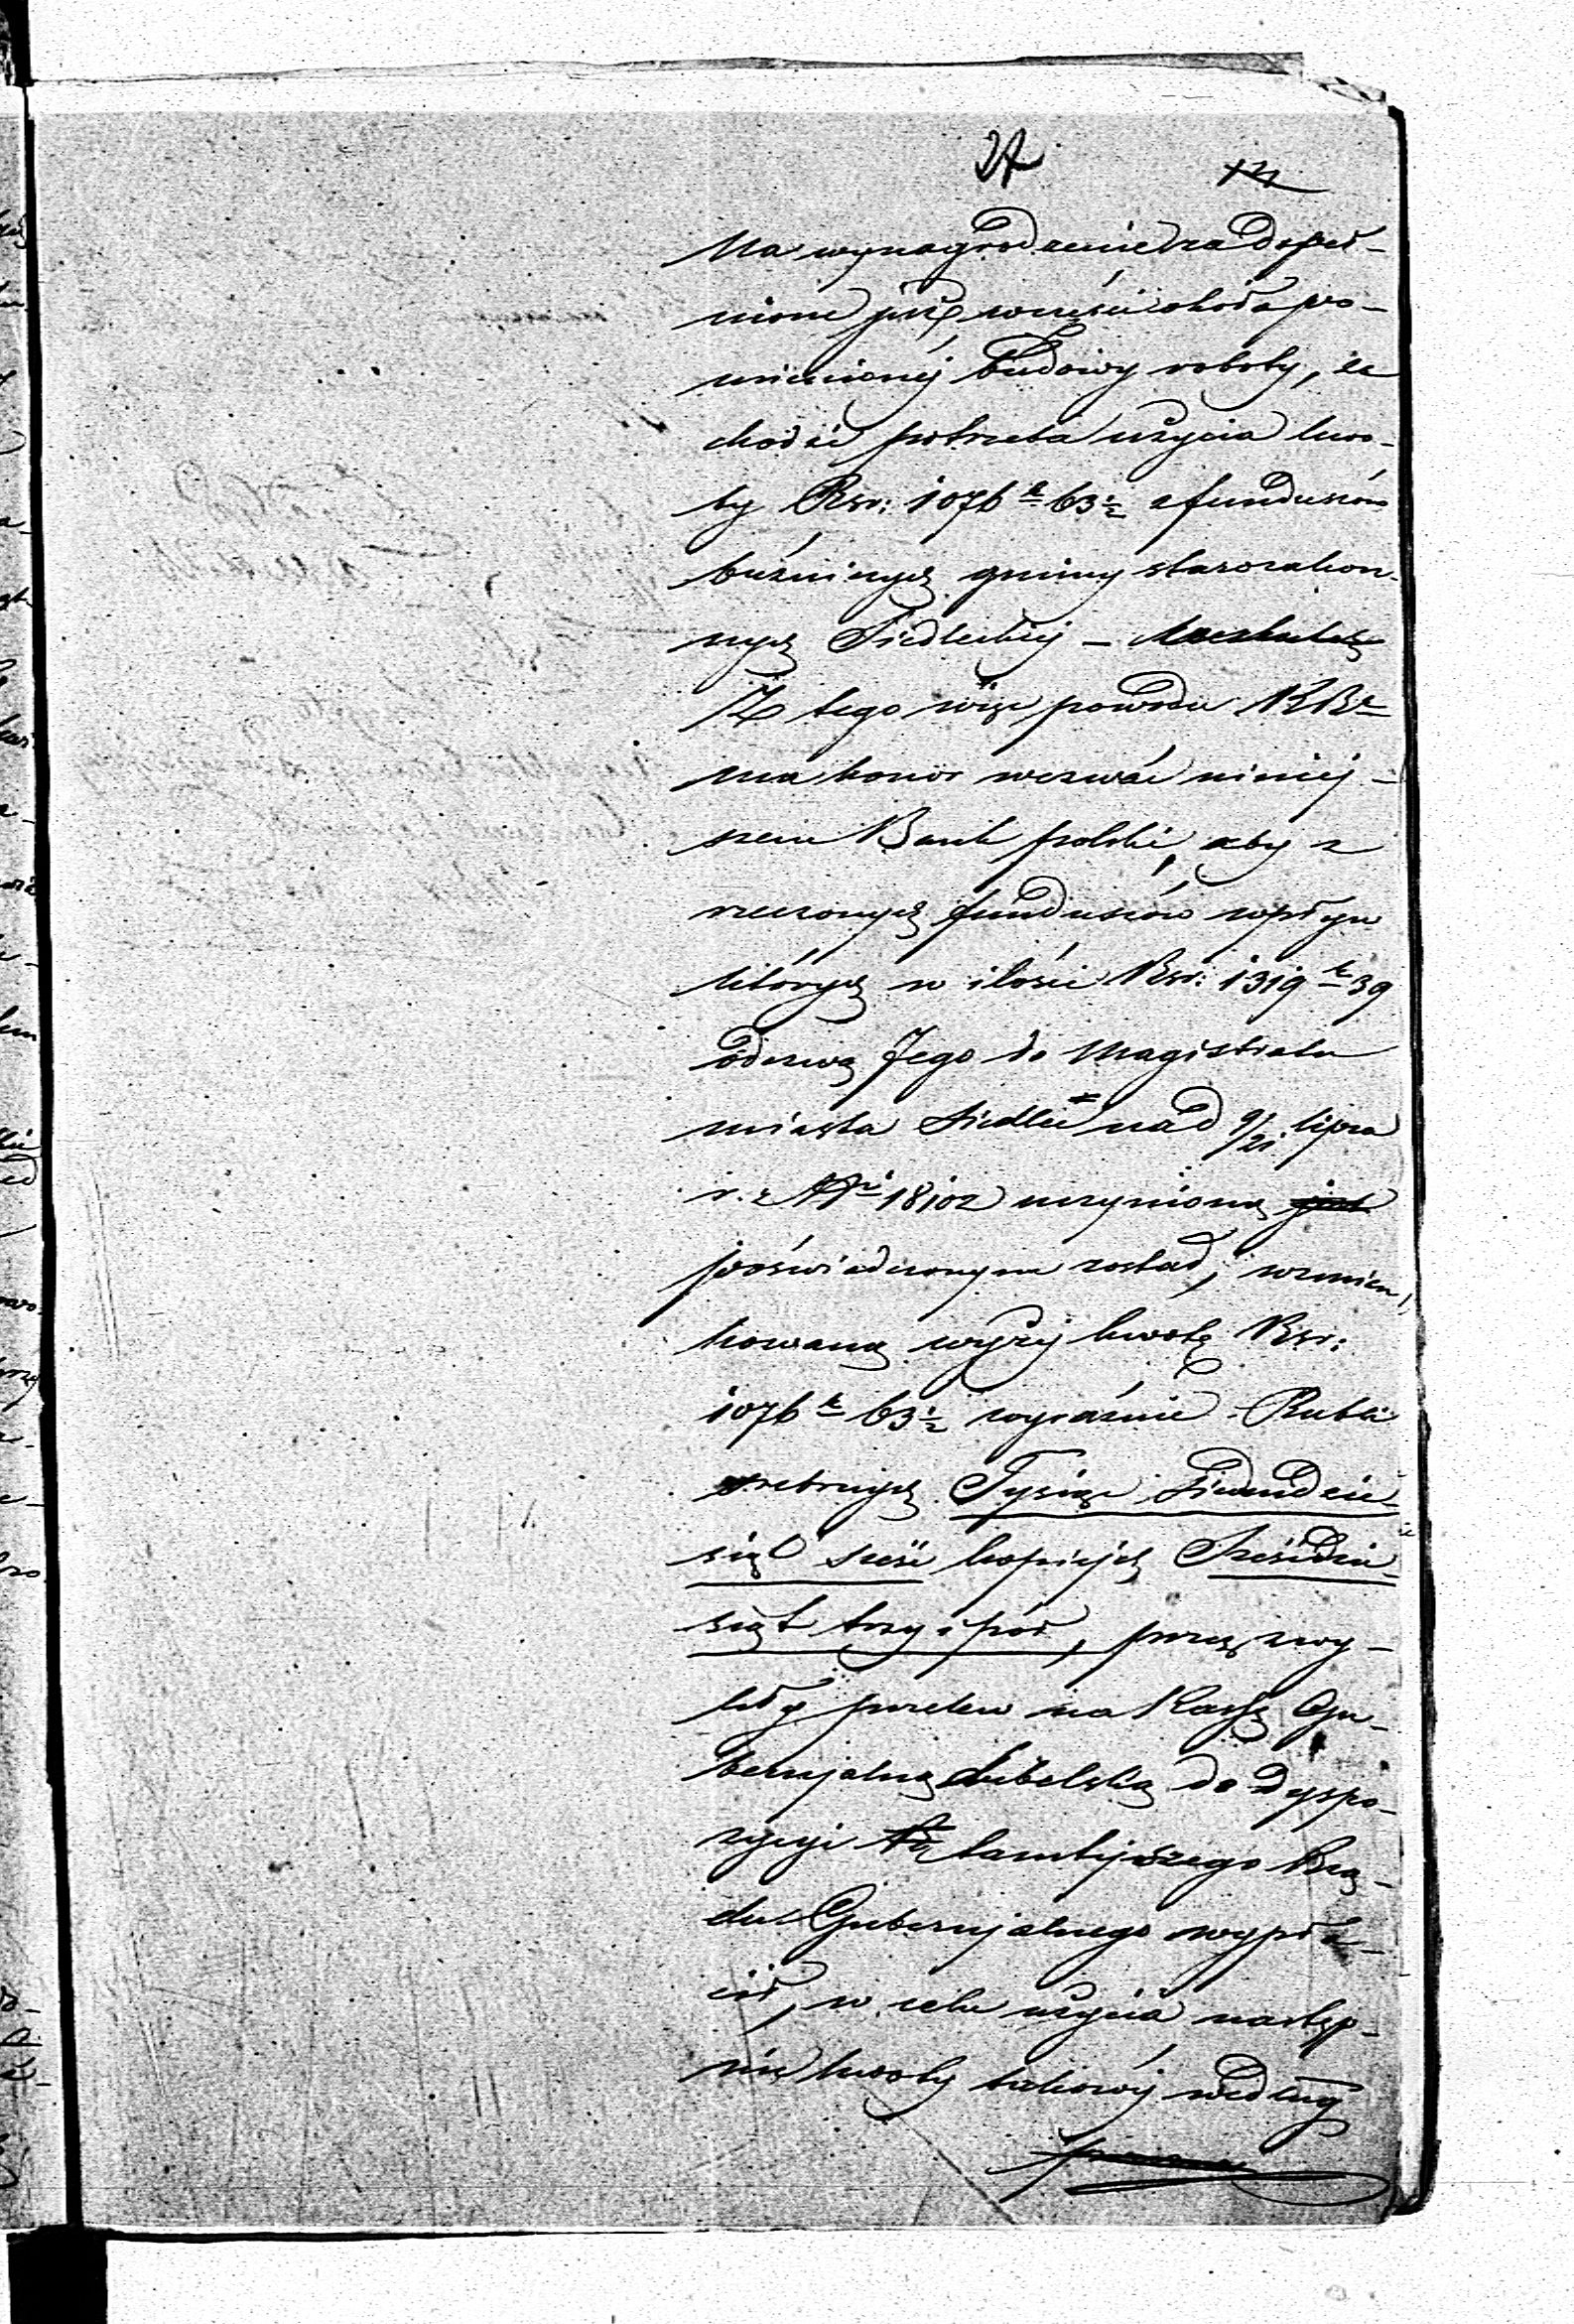 27
Na wynagrodzenie za dopeł-
nione już w części około po-
mienionéj budowy roboty, za
chodzi potrzeba użycia kwo-
ty Rsr: 1076 k 63½ z funduszów
bużniczych gminy starozakon-
nych Siedleckiéj –
Z tego więc powodu KR
ma honor wezwać niniéj-
szem Bank polski, aby z
rzeczonych funduszów wpływ
których w ilości Rsr: 1319 k 39
odezwą Jego do Magistratu
miasta Siedlec na d 9/21 lipca
r. z No 18102 uczynioną
poświadczonym został, wzmian
kowaną wyżéj kwotę Rsr:
1076 k 63½ wyraźnie Rubli
srebrnych Tysiąc Siedmdzie-
siąt sześć kopiejek Sześćdzie-
siąt trzy i pół, przez zwy-
kły przelew na Kassę Gu-
bernjalną Lubelską do dyspo-
zycyi tamtejszego Rzą-
du Gubernjalnego wypła-
cił, w celu użycia następ-
nie kwoty takowéj według